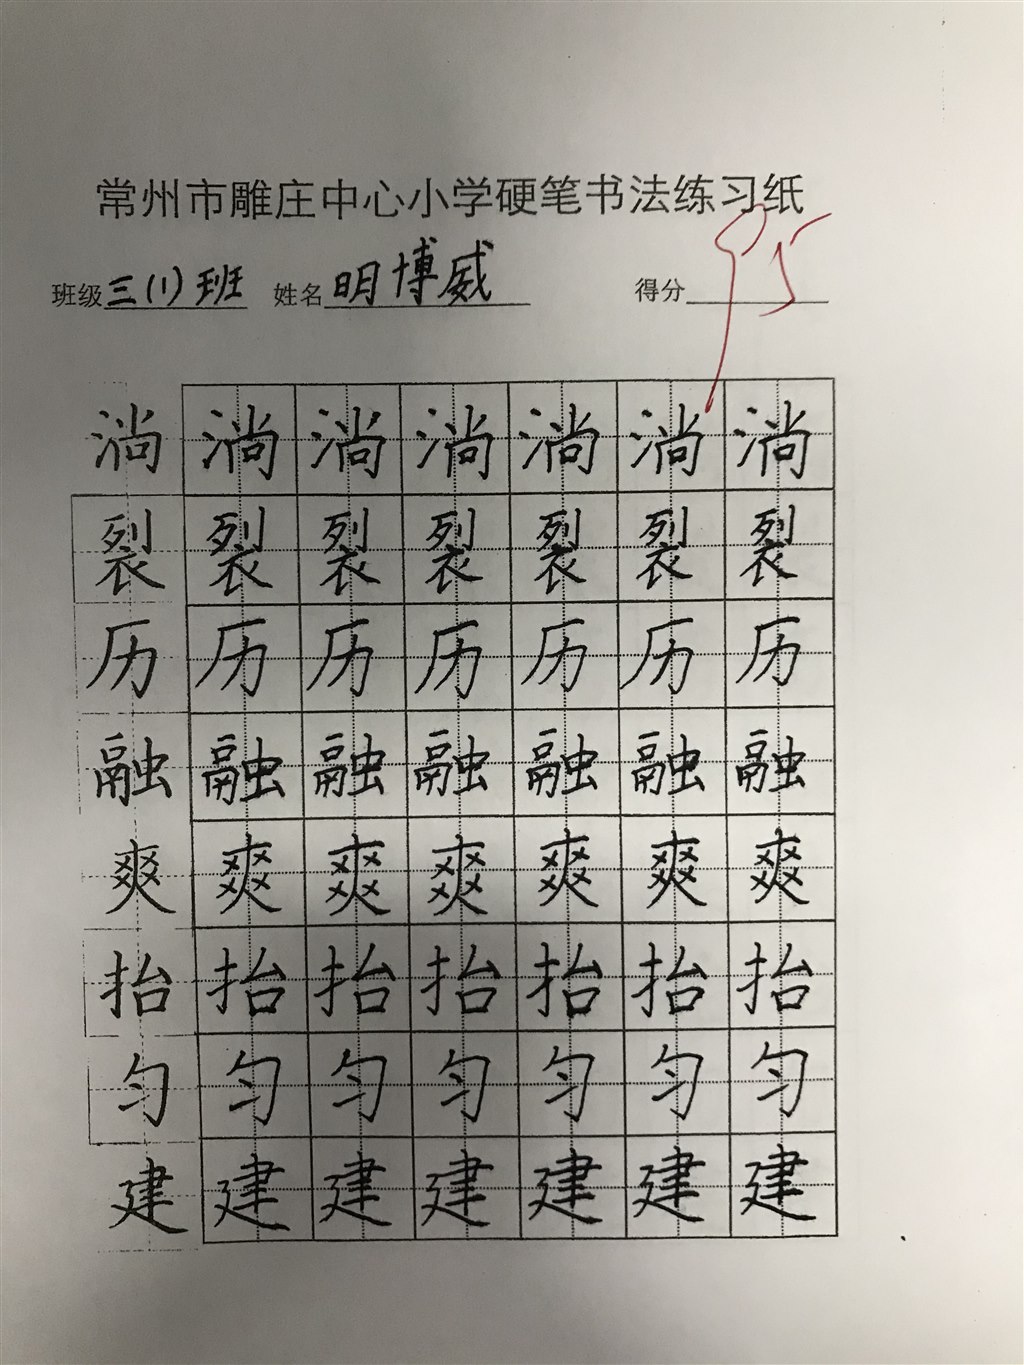 常州市雕庄中心小学硬笔书法练习纸
班级三(1)班 姓名明博威 得分95
淌淌淌淌淌淌淌
裂裂裂裂裂裂裂
历历历历历历历
融融融融融融融
爽爽爽爽爽爽爽
抬抬抬抬抬抬抬
匀匀匀匀匀匀匀
建建建建建建建